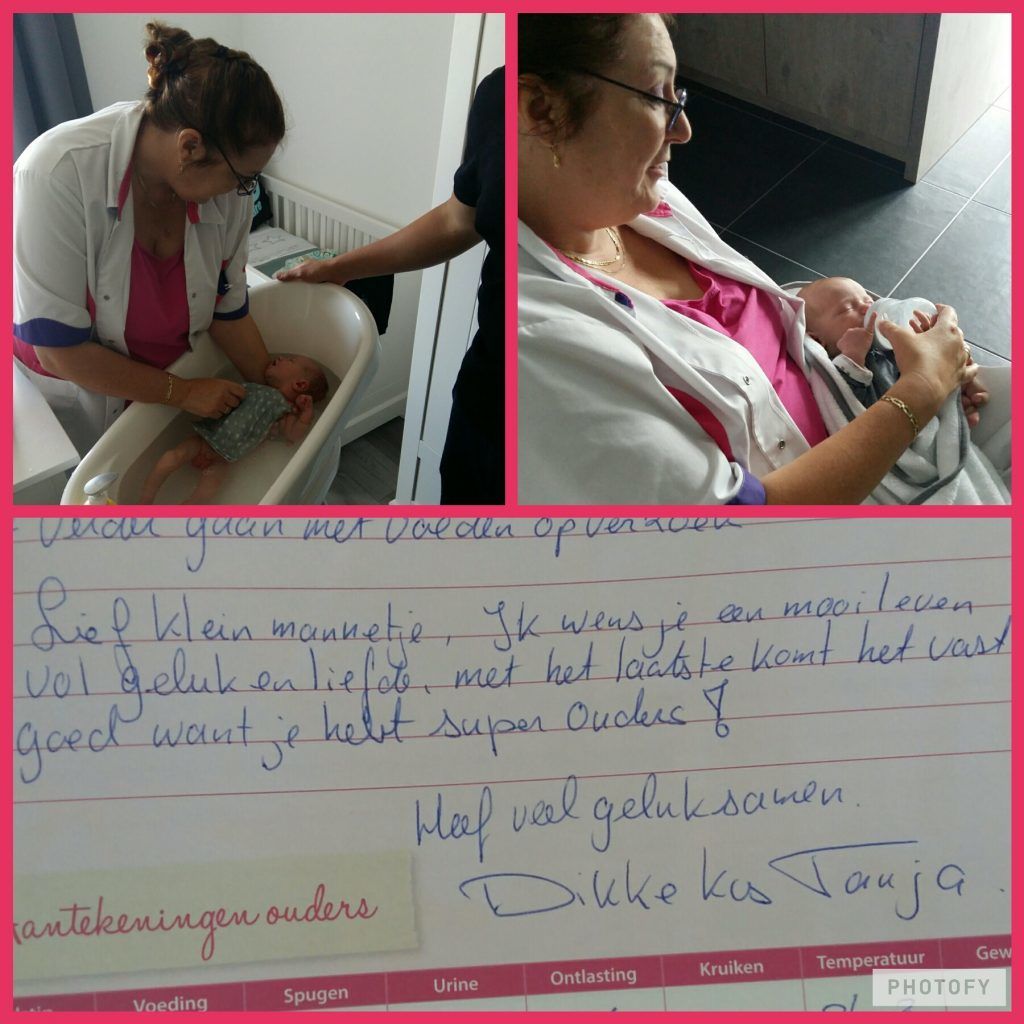 - Verder gaan met voeden op verzoek
Lief klein mannetje, Ik wens je een mooi leven
vol geluk en liefde, met het laatste komt het vast
goed want je hebt super ouders!
Heel veel geluk samen.
Dikke kus Tanja.
aantekeningen ouders
Voeding Spugen Urine Ontlasting Kruiken Temperatuur Gew
PHOTOFY